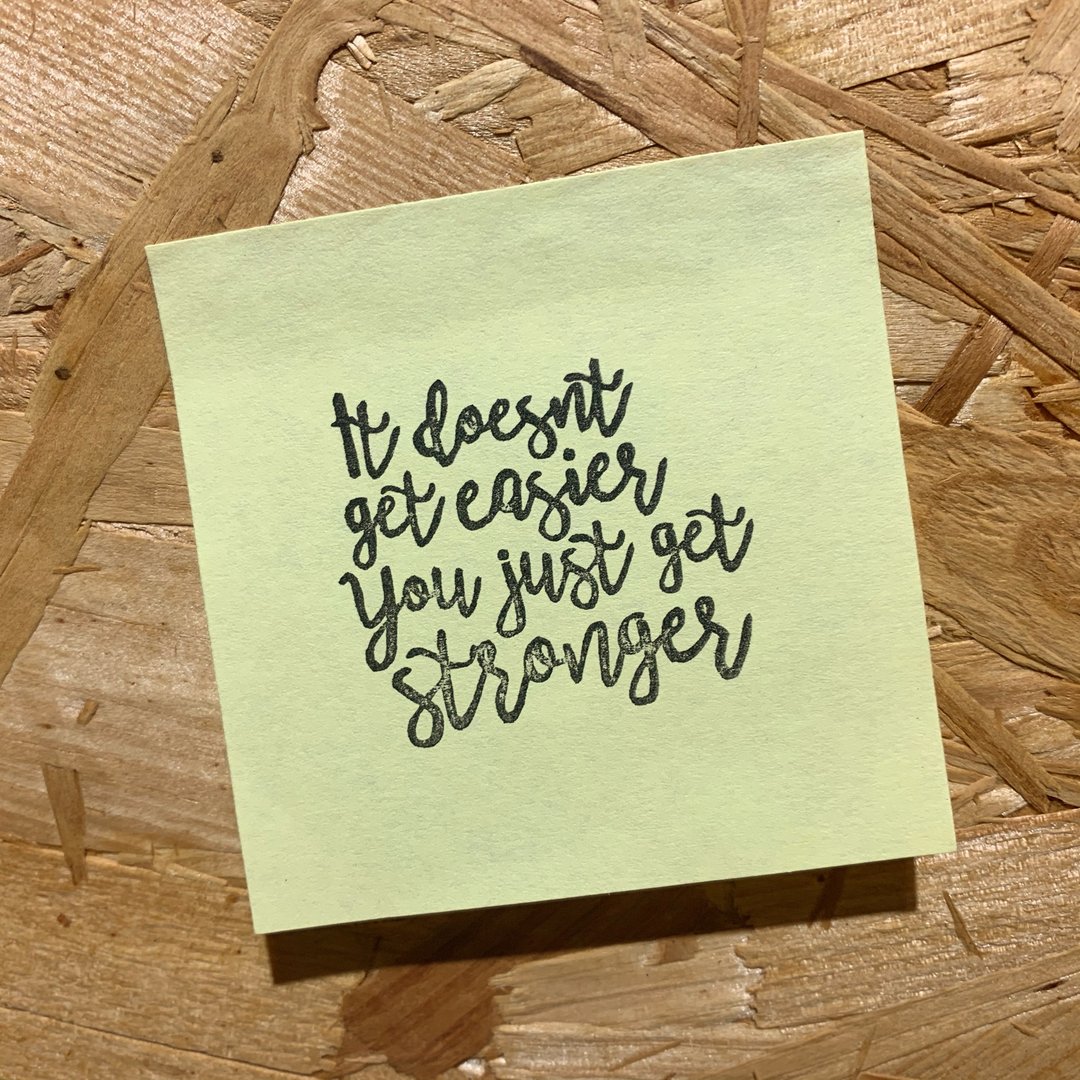 It doesnt
get easier
You just get
stronger